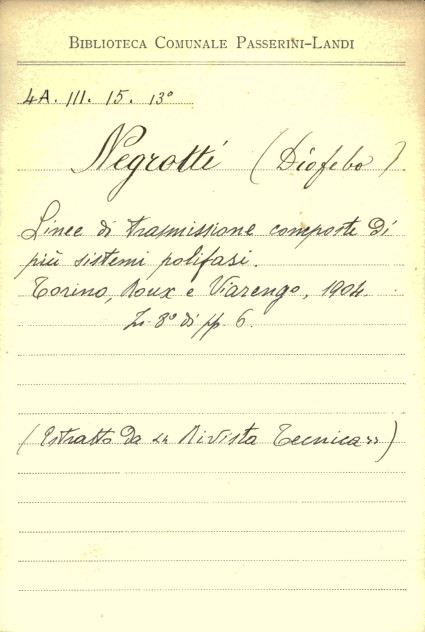 BIBLIOTECA COMUNALE PASSERINI-LANDI
4A. III. 15. 13°
Negrotti (Diofebo)
Linee di trasmissione composte di
più sistemi polifasi.
Torino, Roux e Viarengo, 1904.
In 8° di pp. 6.
(Estratto da « Rivista Tecnica »)